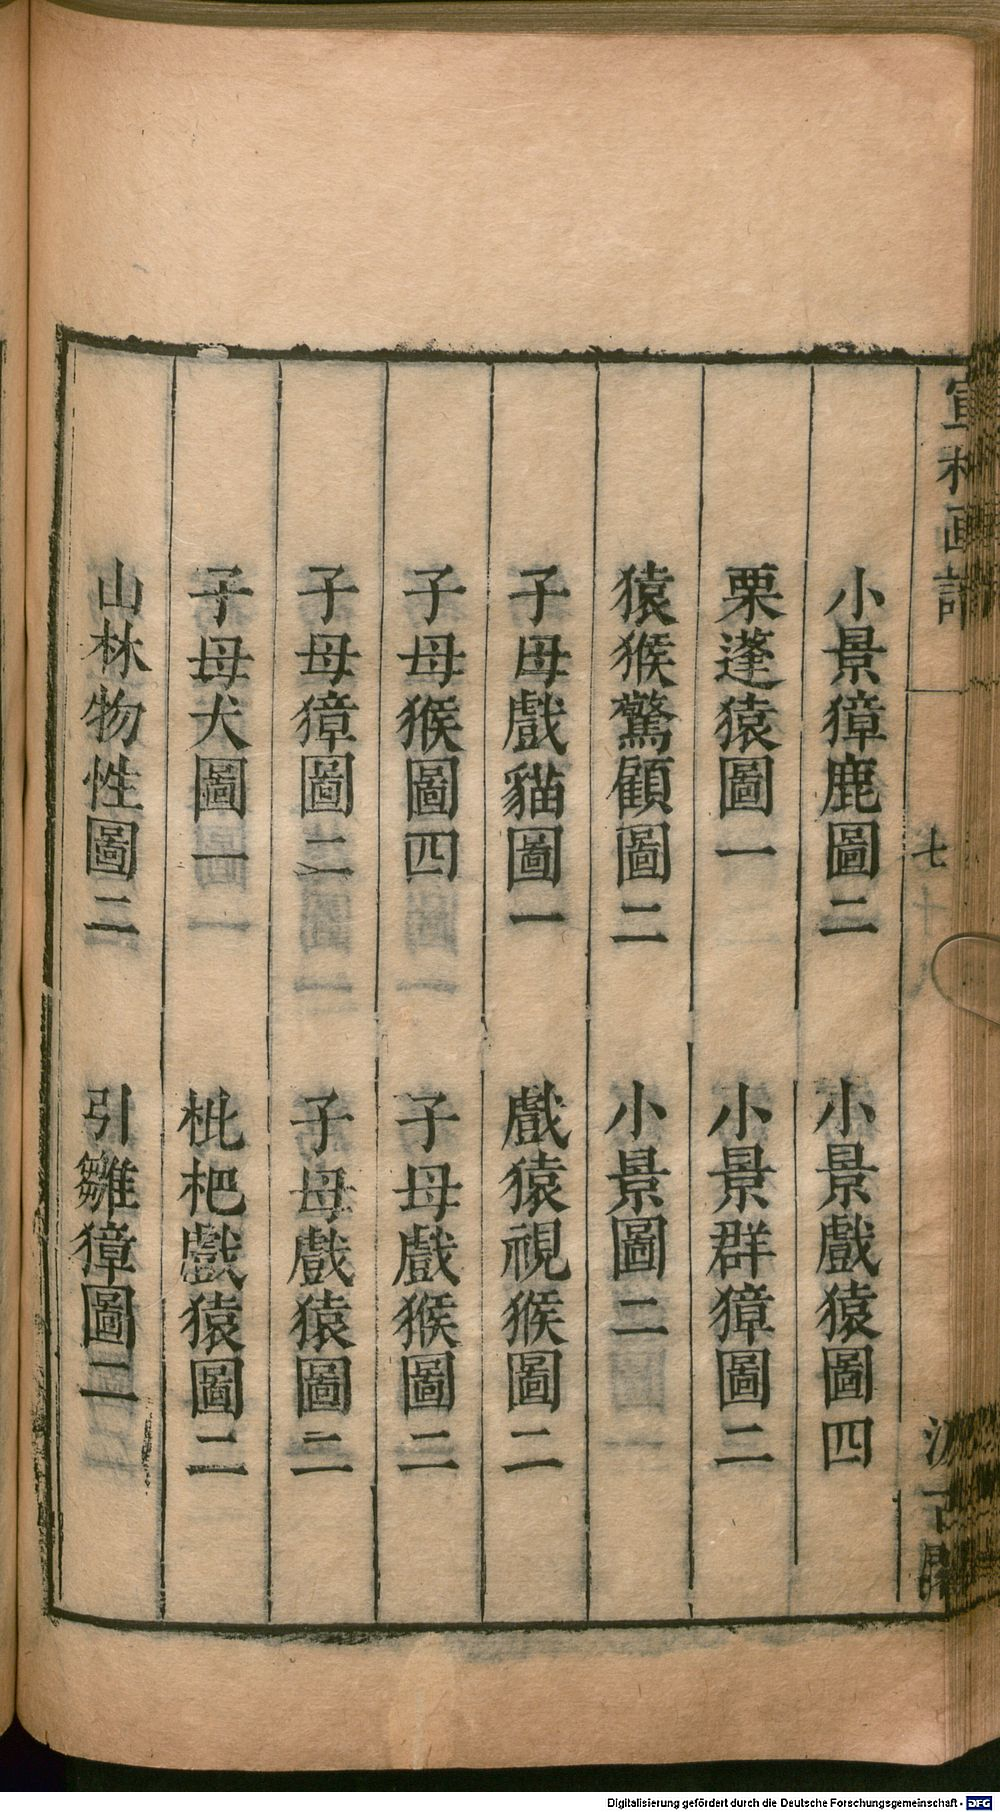 宣和画譜
小景獐鹿圖二　小景戲猿圖四
栗蓬猿圖一　小景群獐圖二
猿猴驚顧圖二　小景圖二
子母戲貓圖一　戲猿視猴圖二
子母猴圖四　子母戲猴圖二
子母獐圖二　子母戲猿圖二
子母犬圖一　枇杷戲猿圖二
山林物性圖二　引雛獐圖二
Digitalisierung gefördert durch die Deutsche Forschungsgemeinschaft - DFG